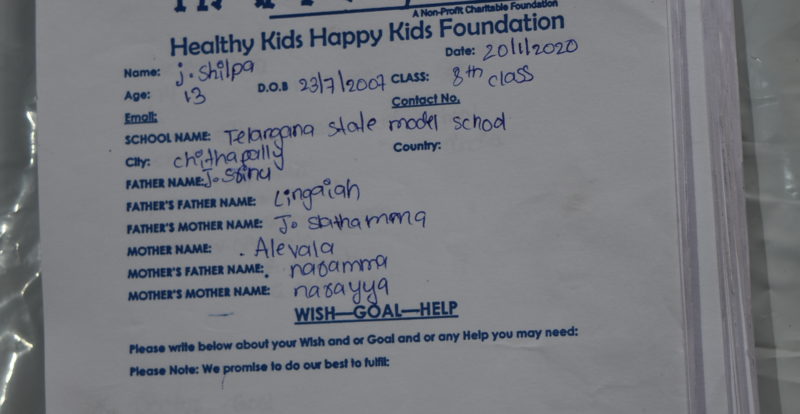 A Non-Profit Charitable Foundation
Healthy Kids Happy Kids Foundation
Date: 20/1/2020
Name: J. Shilpa
Age: 13 D.O.B 23/7/2007 CLASS: 8th class
Email: Contact No.
SCHOOL NAME: Telangana state model school
City: chithapally Country:
FATHER NAME: J. Srinu
FATHER'S FATHER NAME: Lingaiah
FATHER'S MOTHER NAME: J.
MOTHER NAME: Alevala
MOTHER'S FATHER NAME: naramma
MOTHER'S MOTHER NAME: narayya
WISH—GOAL—HELP
Please write below about your Wish and or Goal and or any Help you may need:
Please Note: We promise to do our best to fulfil: